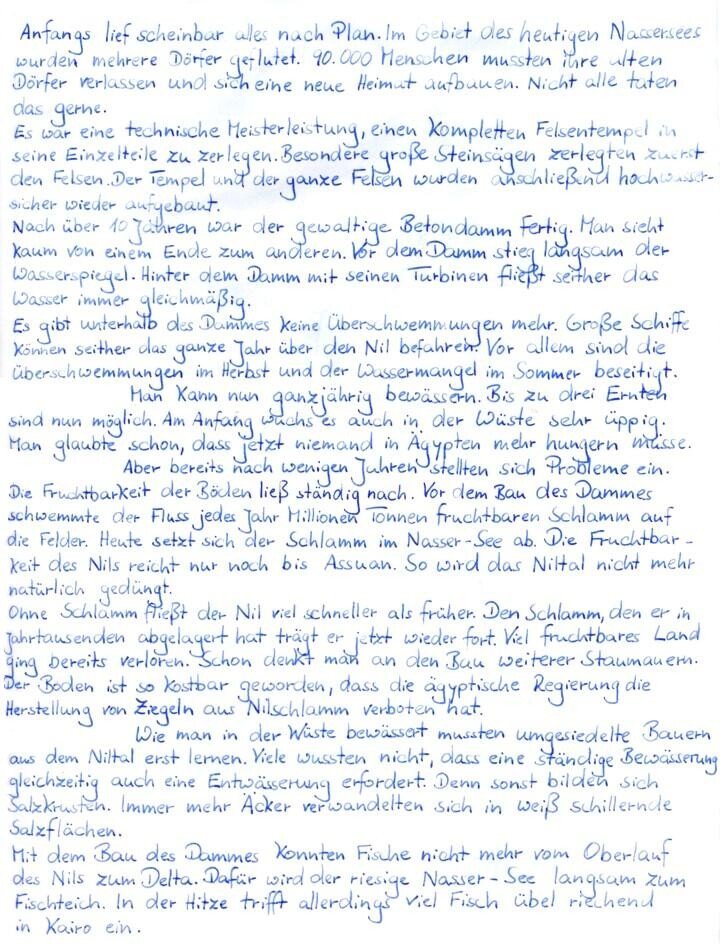 Anfangs lief scheinbar alles nach Plan. Im Gebiet des heutigen Nassersees
wurden mehrere Dörfer geflutet. 90.000 Menschen mussten ihre alten
Dörfer verlassen und sich eine neue Heimat aufbauen. Nicht alle taten
das gerne.
Es war eine technische Meisterleistung, einen kompletten Felsentempel in
seine Einzelteile zu zerlegen. Besondere große Steinsägen zerlegten zuerst
den Felsen. Der Tempel und der ganze Felsen wurden anschließend hochwasser-
sicher wieder aufgebaut.
Nach über 10 Jahren war der gewaltige Betondamm fertig. Man sieht
kaum von einem Ende zum anderen. Vor dem Damm stieg langsam der
Wasserspiegel. Hinter dem Damm mit seinen Turbinen fließt seither das
Wasser immer gleichmäßig.
Es gibt unterhalb des Dammes keine Überschwemmungen mehr. Große Schiffe
können seither das ganze Jahr über den Nil befahren. Vor allem sind die
Überschwemmungen im Herbst und der Wassermangel im Sommer beseitigt.
Man kann nun ganzjährig bewässern. Bis zu drei Ernten
sind nun möglich. Am Anfang wuchs es auch in der Wüste sehr üppig.
Man glaubte schon, dass jetzt niemand in Ägypten mehr hungern müsse.
Aber bereits nach wenigen Jahren stellten sich Probleme ein.
Die Fruchtbarkeit der Böden ließ ständig nach. Vor dem Bau des Dammes
schwemmte der Fluss jedes Jahr Millionen Tonnen fruchtbaren Schlamm auf
die Felder. Heute setzt sich der Schlamm im Nasser-See ab. Die Fruchtbar-
keit des Nils reicht nur noch bis Assuan. So wird das Niltal nicht mehr
natürlich gedüngt.
Ohne Schlamm fließt der Nil viel schneller als früher. Den Schlamm, den er in
Jahrtausenden abgelagert hat trägt er jetzt wieder fort. Viel fruchtbares Land
ging bereits verloren. Schon denkt man an den Bau weiterer Staumauern.
Der Boden ist so kostbar geworden, dass die ägyptische Regierung die
Herstellung von Ziegeln aus Nilschlamm verboten hat.
Wie man in der Wüste bewässert mussten umgesiedelte Bauern
aus dem Niltal erst lernen. Viele wussten nicht, dass eine ständige Bewässerung
gleichzeitig auch eine Entwässerung erfordert. Denn sonst bilden sich
Salzkrusten. Immer mehr Äcker verwandelten sich in weiß schillernde
Salzflächen.
Mit dem Bau des Dammes konnten Fische nicht mehr vom Oberlauf
des Nils zum Delta. Dafür wird der riesige Nasser-See langsam zum
Fischteich. In der Hitze trifft allerdings viel Fisch übel riechend
in Kairo ein.